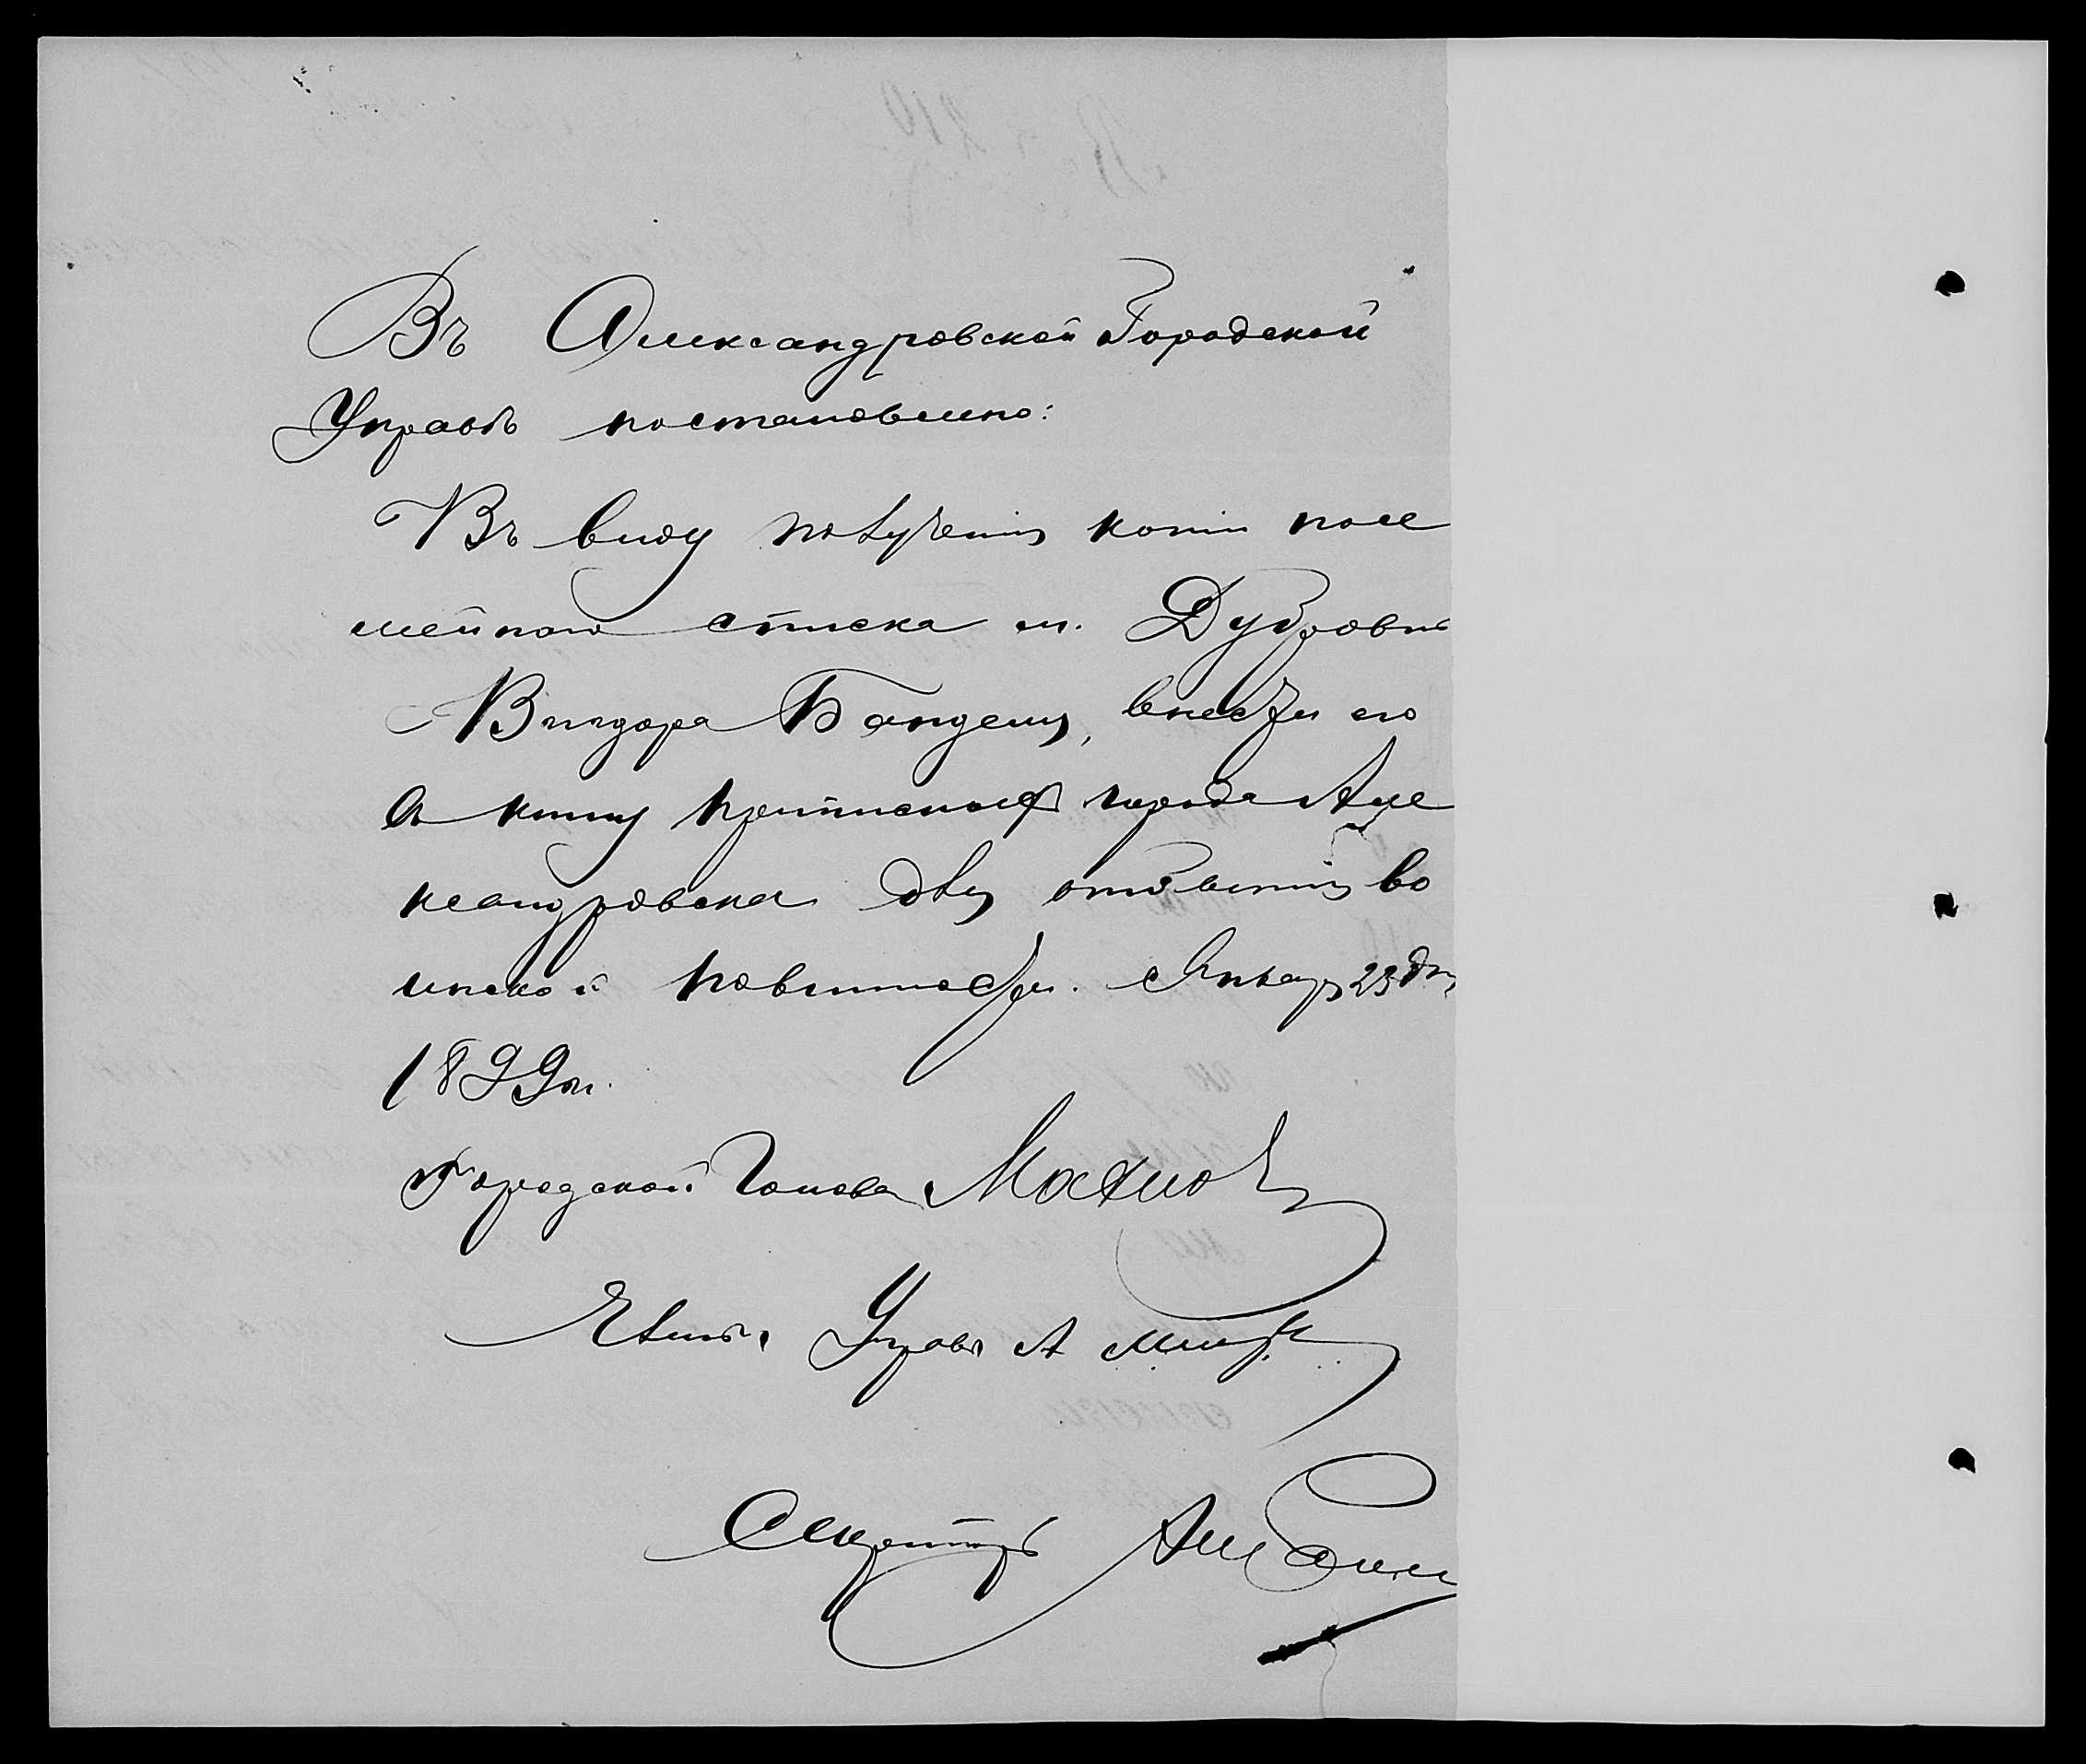 Въ Александровской Городской
Управѣ постановлено:
Въ виду полученія копіи посе
мейнаго списка м. Дубровны
Вигдора Банделя, внести его
въ книгу приписныхъ города Але
ксандровска для отбытія во
инской повинности. Января 23 дня
1899 г.
Городской Голова Махно
Членъ Управы А
Секретарь